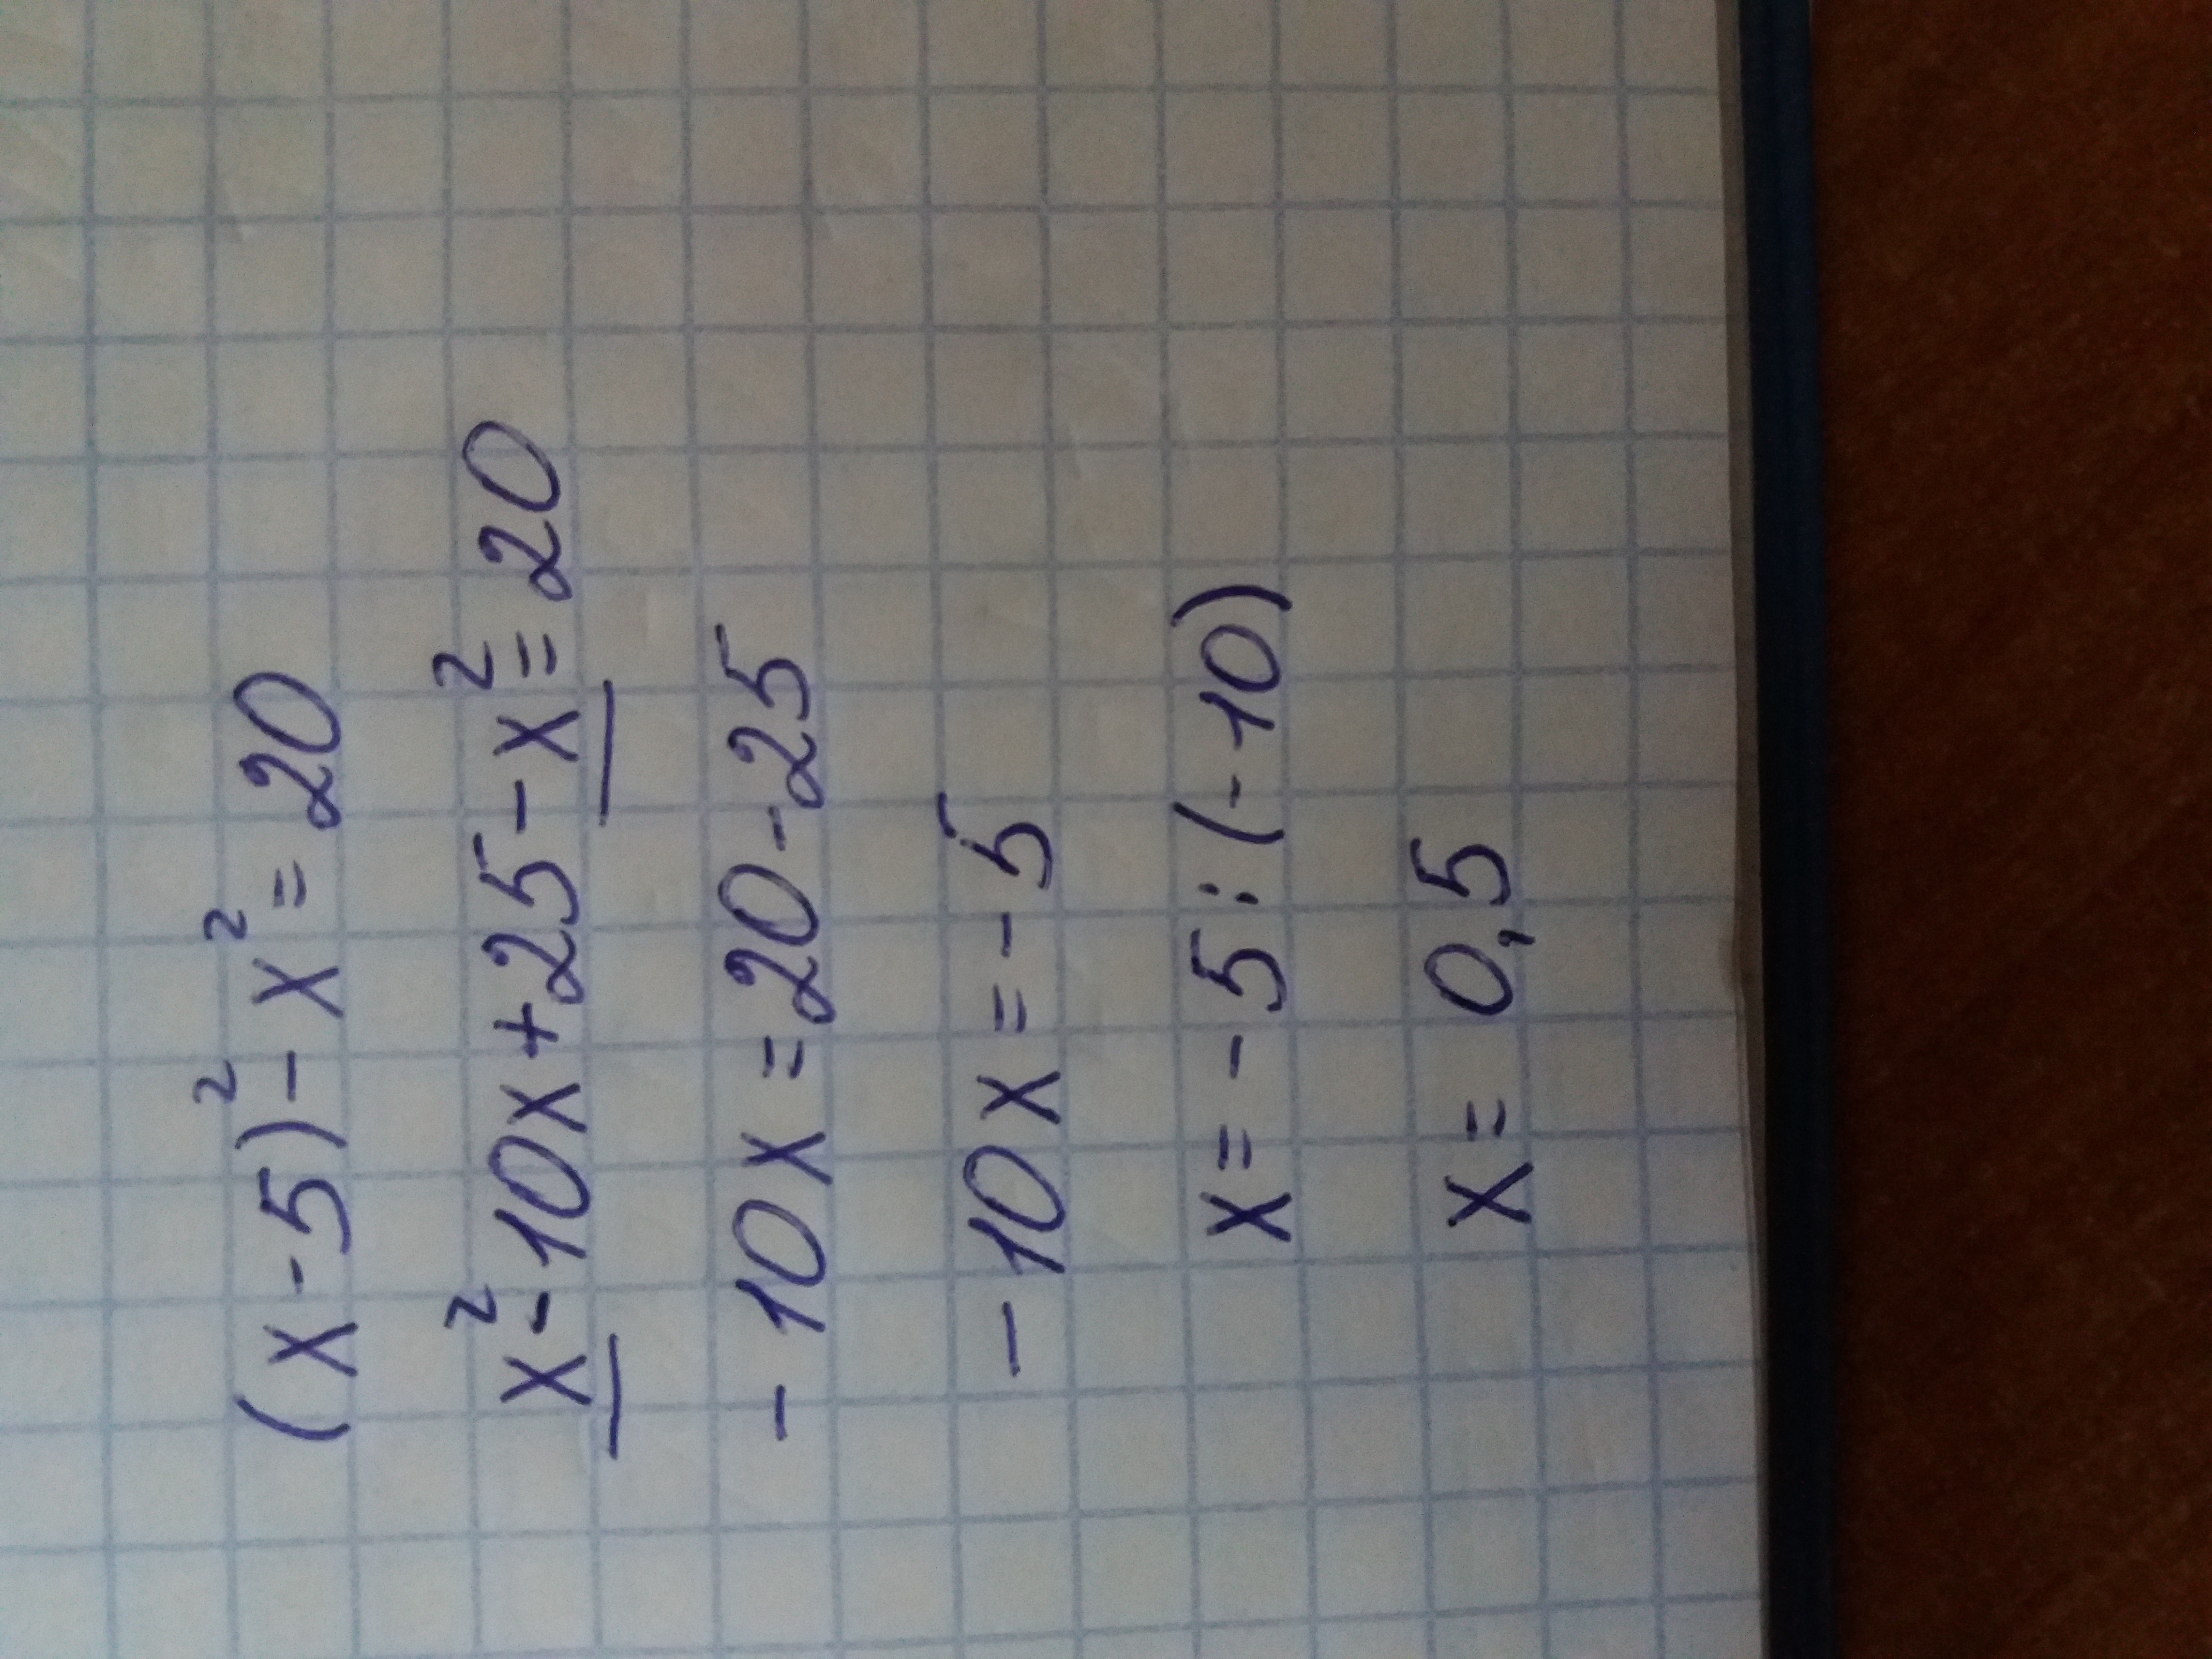 (x-5)²-x²=20
x²-10x+25-x²=20
-10x=20-25
-10x=-5
x=-5:(-10)
x=0,5